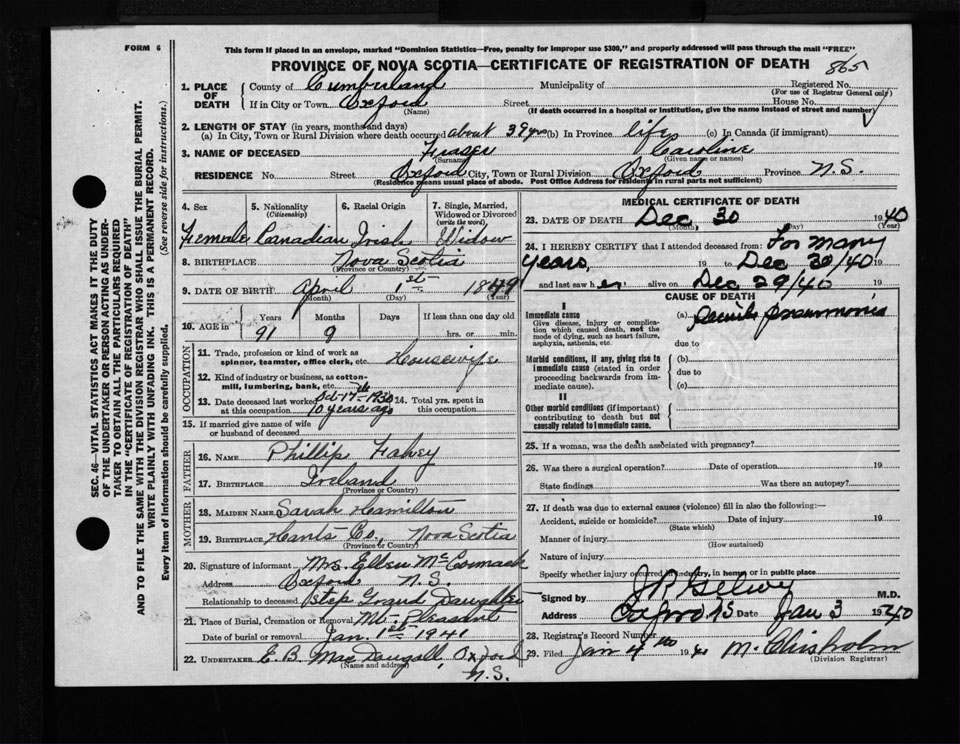 FORM 6
This form if placed in an envelope, marked "Dominion Statistics—Free, penalty for improper use $300," and properly addressed will pass through the mail "FREE"
PROVINCE OF NOVA SCOTIA—CERTIFICATE OF REGISTRATION OF DEATH 865
SEC. 46—VITAL STATISTICS ACT MAKES IT THE DUTY
OF THE UNDERTAKER OR PERSON ACTING AS UNDER-
TAKER TO OBTAIN ALL THE PARTICULARS REQUIRED
IN THE "CERTIFICATE OF REGISTRATION OF DEATH"
AND TO FILE THE SAME WITH THE DIVISION REGISTRAR WHO SHALL ISSUE THE BURIAL PERMIT.
WRITE PLAINLY WITH UNFADING INK. THIS IS A PERMANENT RECORD.
Every item of Information should be carefully supplied. (See reverse side for instructions.)
1. PLACE OF DEATH
County of Cumberland Municipality of Registered No.
(For use of Registrar General only)
If in City or Town Oxford Street House No.
(Name) (If death occurred in a hospital or institution, give the name instead of street and number)
2. LENGTH OF STAY (in years, months and days)
(a) In City, Town or Rural Division where death occurred about 39 yrs (b) In Province life (c) In Canada (if immigrant)
3. NAME OF DECEASED Fraser Caroline
(Surname) (Given name or names)
RESIDENCE No. Street Oxford City, Town or Rural Division Oxford Province N.S.
(Residence means usual place of abode. Post Office Address for residents in rural parts not sufficient)
4. Sex 5. Nationality (Citizenship) 6. Racial Origin 7. Single, Married, Widowed or Divorced (write the word)
Female Canadian Irish Widow
8. BIRTHPLACE Nova Scotia
(Province or Country)
9. DATE OF BIRTH April 1st 1849
(Month) (Day) (Year)
10. AGE in Years Months Days If less than one day
91 9 hrs. or min.
OCCUPATION
11. Trade, profession or kind of work as spinner, teamster, office clerk, etc. Housewife
12. Kind of industry or business, as cotton-mill, lumbering, bank, etc.
13. Date deceased last worked at this occupation Oct-17th-1930 10 years ago 14. Total yrs. spent in this occupation
15. If married give name of wife or husband of deceased
FATHER
16. NAME Phillip Fahey
17. BIRTHPLACE Ireland
(Province or Country)
MOTHER
18. MAIDEN NAME Sarah Hamilton
19. BIRTHPLACE Hants Co., Nova Scotia
(Province or Country)
20. Signature of informant Mrs. Ellen McCormack
Address Oxford N.S.
Relationship to deceased Step Grand Daughter
21. Place of Burial, Cremation or Removal Mt. Pleasant
Date of burial or removal Jan. 1st 1941
22. UNDERTAKER E. B. MacDougall, Oxford N.S.
(Name and address)
MEDICAL CERTIFICATE OF DEATH
23. DATE OF DEATH Dec 30 1940
(Month) (Day) (Year)
24. I HEREBY CERTIFY that I attended deceased from: For many
years, 19 to Dec 30/40 19
and last saw her alive on Dec 29/40 19
CAUSE OF DEATH
I
Immediate cause (a) Senile Pneumonia
Give disease, injury or complication which caused death, not the mode of dying, such as heart failure, asphyxia, asthenia, etc.
due to
Morbid conditions, if any, giving rise to immediate cause (stated in order proceeding backwards from immediate cause).
(b)
due to
(c)
II
Other morbid conditions (if important) contributing to death but not causally related to immediate cause.
25. If a woman, was the death associated with pregnancy?
26. Was there a surgical operation? Date of operation 19
State findings Was there an autopsy?
27. If death was due to external causes (violence) fill in also the following:—
Accident, suicide or homicide? Date of injury 19
(State which)
Manner of injury
(How sustained)
Nature of injury
Specify whether injury occurred in industry, in home, or in public place
Signed by M.D.
Address Date Jan 3
28. Registrar's Record Number
29. Filed Jan 4th 19 M. Chisholm
(Division Registrar)